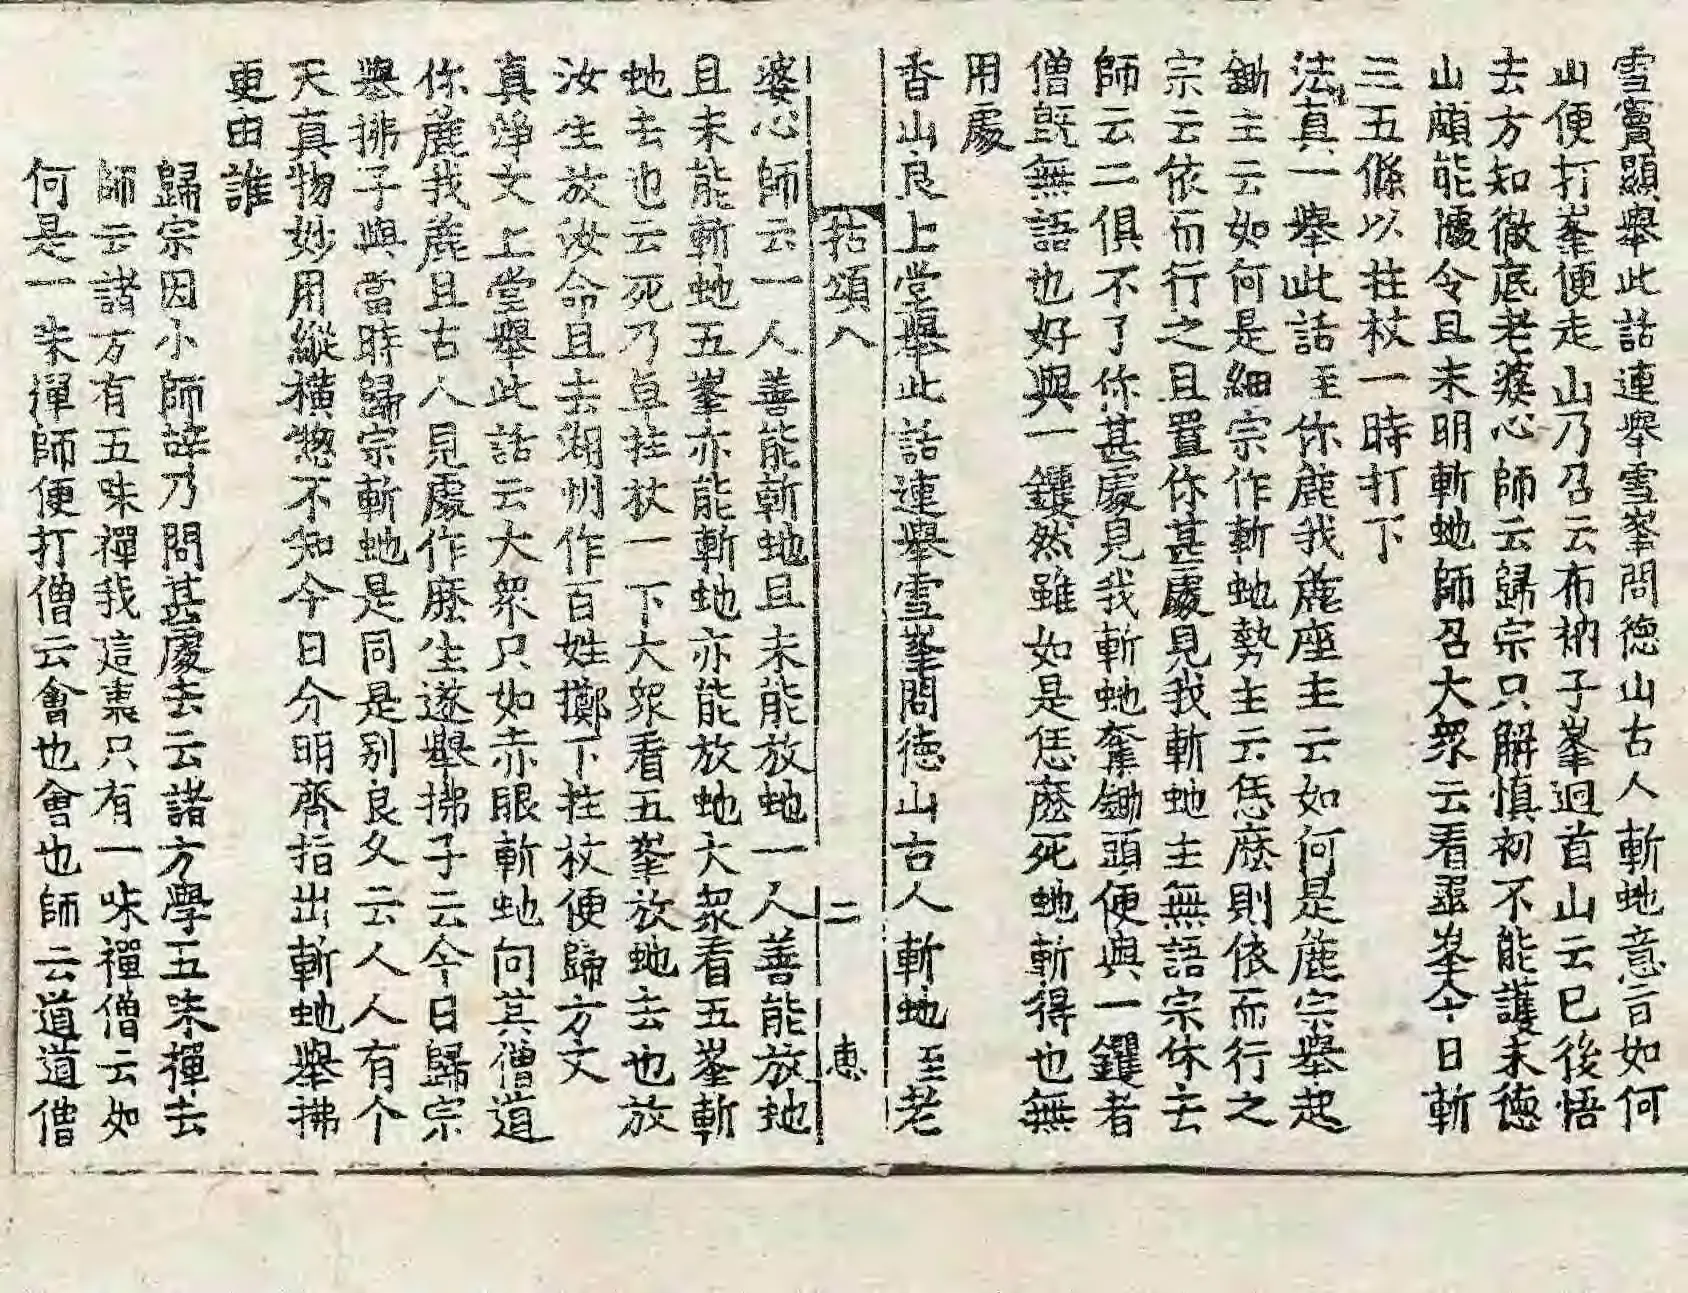 雪竇顯擧此話連擧雪峯問德山古人斬虵意旨如何
山便打峯便走山乃召云布衲子峯迴首山云已後悟
去方知徹底老婆心師云歸宗只解愼初不能護末德
山頗能據令且未明斬虵師召大衆云看翠峯今日斬
三五條以拄杖一時打下
法眞一擧此話至你麁我麁座主云如何是麁宗擧起
鋤主云如何是細宗作斬虵勢主云恁麽則依而行之
宗云依而行之且置你甚處見我斬虵主無語宗休去
師云二俱不了你甚處見我斬虵奪鋤頭便與一钁者
僧旣無語也好與一钁然雖如是恁麽死虵斬得也無
用處
香山良上堂擧此話連擧雪峯問德山古人斬虵至老
拈頌八 二 惠
婆心師云一人善能斬虵且未能放虵一人善能放虵
且未能斬虵五峯亦能斬虵亦能放虵大衆看五峯斬
虵去也云死乃卓拄杖一下大衆看五峯放虵去也放
汝生放汝命且去湖州作百姓擲下拄杖便歸方丈
眞淨文上堂擧此話云大衆只如赤眼斬虵向其僧道
你麁我麁且古人見處作麽生遂擧拂子云今日歸宗
擧拂子與當時歸宗斬虵是同是別良久云人人有个
天眞物妙用縱橫惣不知今日分明齊指出斬虵擧拂
更由誰
歸宗因小師辞乃問甚處去云諸方學五味禪去
師云諸方有五味禪我這裏只有一味禪僧云如
何是一味禪師便打僧云會也會也師云道道僧